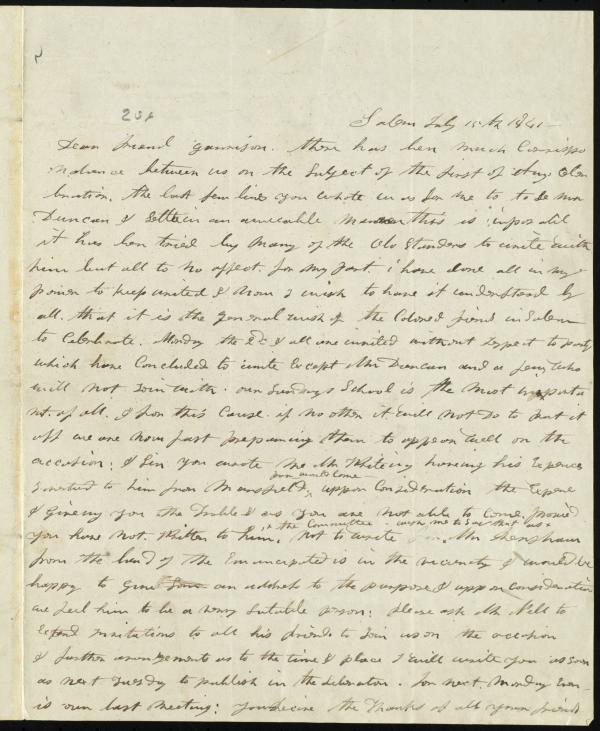 Salem July 15th 1841-
Dear friend garrison. there has ben much Corrispo
ndence between us on the Subject of the first of Aug. Cele
bration. the last few lines you wrote in us for me to to se mr
Duncan & Settle in an amicable manner this is imposible
it has ben tried by many of the Old Standers to unite with
him but all to no affect. for my part. i have done all in my
power to keep united & Now I wish to have it understood by
all. that it is the general wish of the Colored friend in Salem
to Celebrate. Monday the 2d & all are invited without respect to party
which have Concluded to unite Except Mr Duncan and a few, who
will not Join with. our Sundays School is the most importa
nt. of all. & for this Cause. if no other it will not Do to put it
off we are now fast prepairing them to appear well on the
occasion; & Sir you wrote me Mr Whiting having his Expences
from and to Come
remited to him from Mansfield, uppon Consideration the Expence
& giveing you the trouble & as you are not able to Come, provid
in the Committee. wish me to Say that as
you have not. Written to him, not to write Mr Henshaw
from the land of the Emancipated is in the vicinity & would be
happy to give an adress to the purpose & uppon Consideration
we feel him to be a very Sutable person; please ask Mr Nell to
Extend invitations to all his friends to Join us on the occation
& further arangements as to the time & place I will write you as soon
as next tuesday to publish in the Liberator. for next Monday Even-
is our last Meeting; you recive the thanks of all your friends